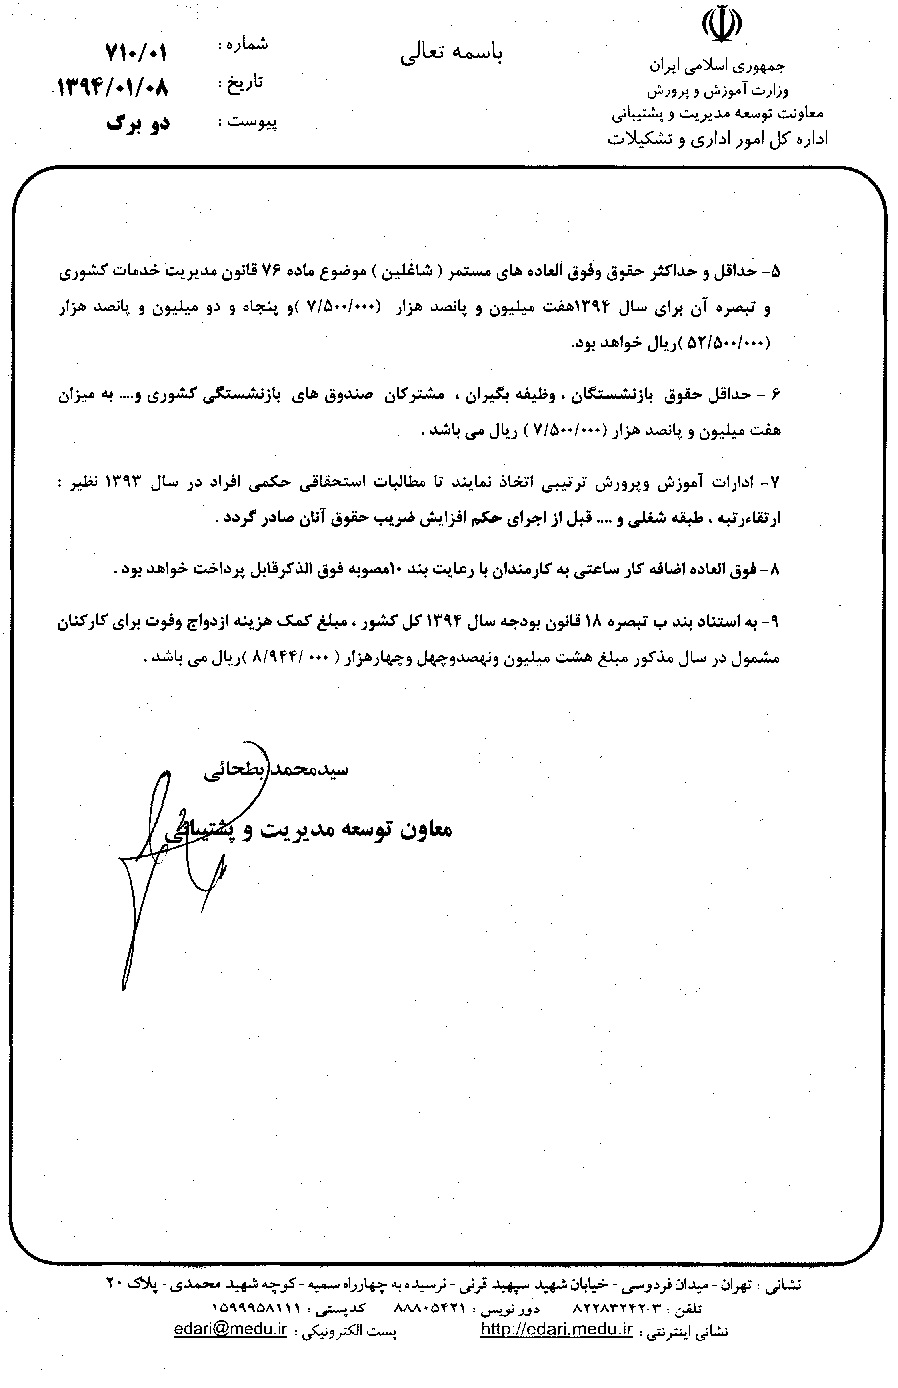 جمهوری اسلامی ایران
وزارت آموزش و پرورش
معاونت توسعه مدیریت و پشتیبانی
اداره کل امور اداری و تشکیلات
باسمه تعالی
شماره : ۷۱۰/۰۱
تاریخ : ۱۳۹۴/۰۱/۰۸
پیوست : دو برگ
۵- حداقل و حداکثر حقوق وفوق العاده های مستمر ( شاغلین ) موضوع ماده ۷۶ قانون مدیریت خدمات کشوری
و تبصره آن برای سال ۱۳۹۴هفت میلیون و پانصد هزار (۷/۵۰۰/۰۰۰ )و پنجاه و دو میلیون و پانصد هزار
(۵۲/۵۰۰/۰۰۰ )ریال خواهد بود.
۶ - حداقل حقوق بازنشستگان ، وظیفه بگیران ، مشترکان صندوق های بازنشستگی کشوری و.... به میزان
هفت میلیون و پانصد هزار (۷/۵۰۰/۰۰۰ ) ریال می باشد .
۷- ادارات آموزش وپرورش ترتیبی اتخاذ نمایند تا مطالبات استحقاقی حکمی افراد در سال ۱۳۹۳ نظیر :
ارتقاءرتبه ، طبقه شغلی و .... قبل از اجرای حکم افزایش ضریب حقوق آنان صادر گردد .
۸- فوق العاده اضافه کار ساعتی به کارمندان با رعایت بند ۱۰مصوبه فوق الذکرقابل پرداخت خواهد بود .
۹- به استناد بند ب تبصره ۱۸ قانون بودجه سال ۱۳۹۴ کل کشور ، مبلغ کمک هزینه ازدواج وفوت برای کارکنان
مشمول در سال مذکور مبلغ هشت میلیون ونهصدوچهل وچهارهزار ( ۸/۹۴۴/۰۰۰ )ریال می باشد .
سیدمحمد بطحائی
معاون توسعه مدیریت و پشتیبانی
نشانی : تهران - میدان فردوسی - خیابان شهید سپهبد قرنی - نرسیده به چهارراه سمیه - کوچه شهید محمدی - پلاک ۲۰
تلفن : ۸۲۲۸۳۲۴۲-۳ دور نویس : ۸۸۸۰۵۴۲۱ کدپستی : ۱۵۹۹۹۵۸۱۱۱
نشانی اینترنتی : http://edari.medu.ir پست الکترونیکی : edari@medu.ir